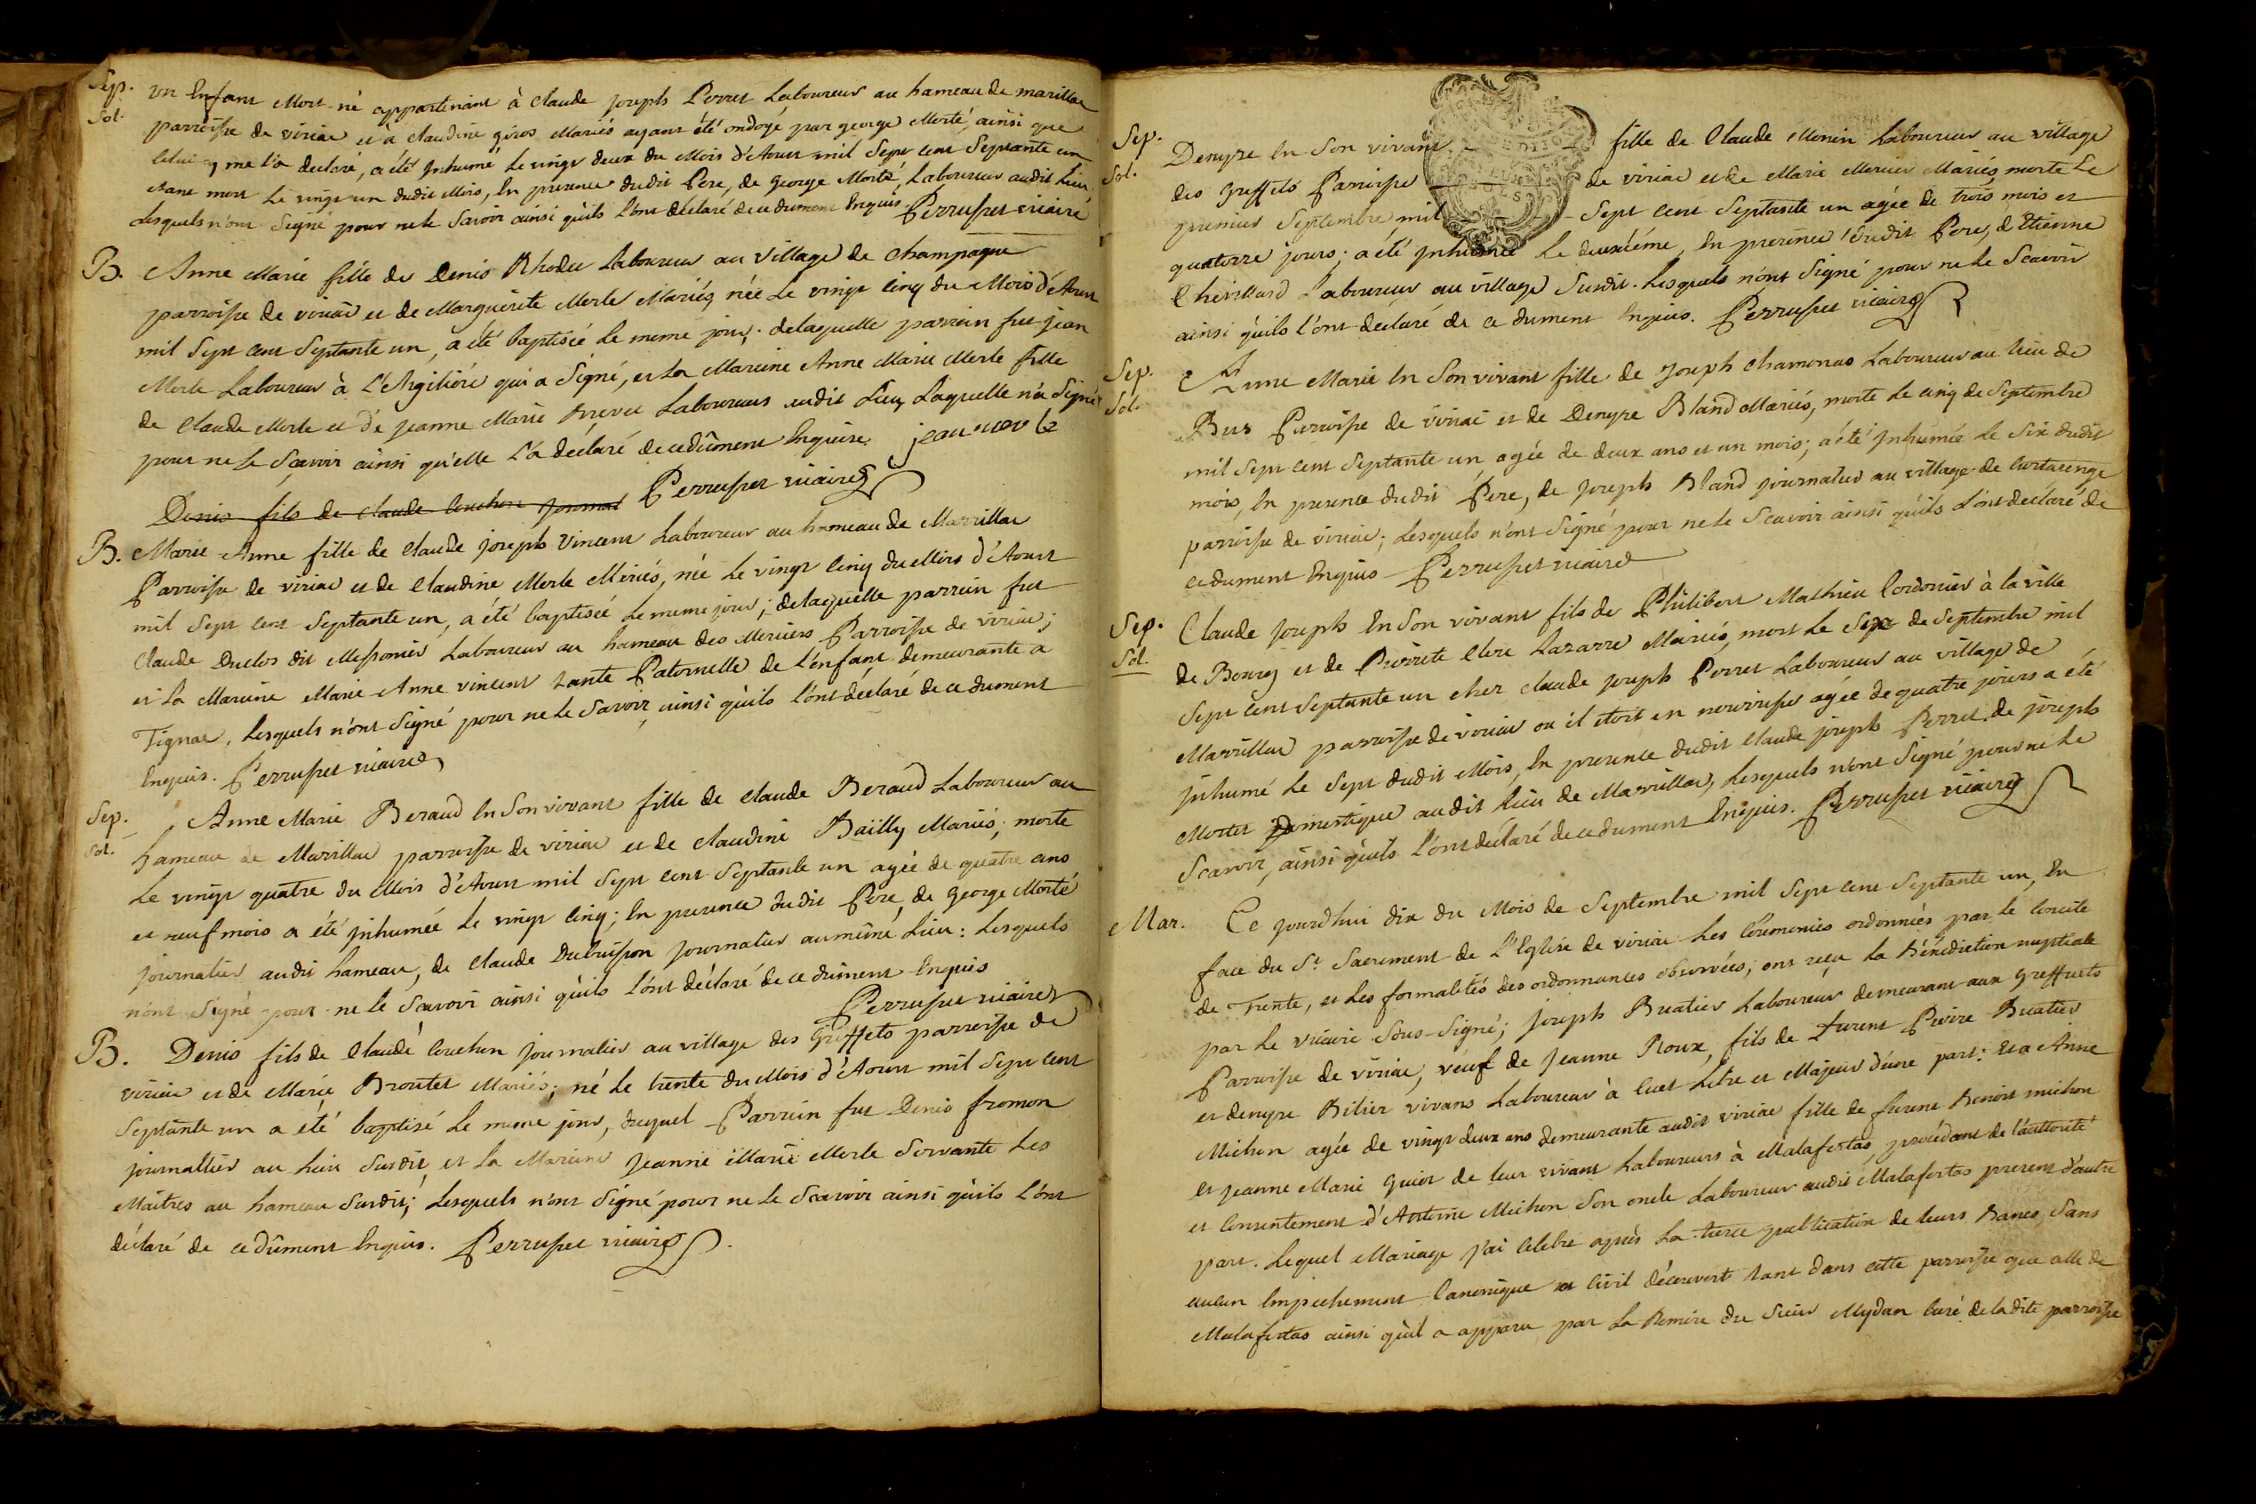 Sep.
Sol.
Un Enfant Mort-né appartenant à Claude Joseph Perret Laboureur au hameau de marillac
parroisse de viriac et à Claudine giros Mariés ayant été ondoyé par george Morté, ainsi que
celui cy me l'a declaré, a été Inhumé Le vingt deux du Mois d'Aoust mil Sept cent Septante un
etant mort Le vingt un dudit Mois, En presence dudit Pere, de George Morté, Laboureur audit Lieu
Lesquels n'ont Signé pour ne le Savoir ainsi qu'ils l'ont déclaré de ce dument Enquis. Perruset vicaire
B. Anne Marie fille de Denis Rhodet Laboureur au village de Champagne
parroisse de viriac et de Marguerite Merle Mariés, née Le vingt Cinq du Mois d'Aoust
mil Sept cent Septante un, a été baptisée le meme jour; delaquelle parrain fut jean
Merle Laboureur à L'Argiliére qui a Signé, et la Mareine Anne Marie Merle fille
de Claude Merle et de Jeanne Marie Brevet Laboureurs audit Lieu, Laquelle n'a Signé
pour ne le Scavoir ainsi qu'elle l'a déclaré de ce dûment Enquise. jean merle
Denis fils de Claude Couchon Journal Perruset vicaire
B. Marie-Anne fille de Claude joseph Vincent Laboureur au hameau de Marvillac
Parroisse de viriac et de Claudine Merle Mariés, née Le vingt Cinq du Mois d'Aoust
mil Sept cent Septante un, a été baptisée Le meme jour; delaquelle parrein fut
Claude Duclos dit Messonier Laboureur au hameau des Meuniers Parroisse de viriac;
et la Mareine Marie-Anne vincent tante Paternelle de l'enfant demeurante a
Tignac, Lesquels n'ont Signé pour ne le Savoir, ainsi qu'ils l'ont déclaré de ce dument
Enquis. Perruset vicaire
Sep.
Sol.
Anne Marie Beraud En Son vivant fille de Claude Beraud Laboureur au
hameau de Marvillac parroisse de viriac et de Claudine Bailly Mariés; morte
Le vingt quatre du Mois d'Aoust mil Sept cent Septante un agée de quatre ans
et neuf mois a été jnhumée Le vingt Cinq; En presence dudit Pere, de George Morté
journalier audit hameau, de Claude Dubuisson journalier au même Lieu: Lesquels
n'ont Signé pour ne le Scavoir ainsi qu'ils l'ont déclaré de ce dument Enquis
Perruset vicaire
B. Denis fils de Claude Couchon journalier au village des Greffets parroisse de
viriac et de Marie Broutet Mariés; né Le trente du Mois d'Aoust mil Sept cent
Septante un a été baptisé Le meme jour, duquel Parrein fut Denis fromon
journallier au Lieu Susdit, et la Mareine Jeanne Marie Merle Servante Les
Maîtres au hameau Susdit; Lesquels n'ont Signé pour ne le Scavoir ainsi qu'ils l'ont
déclaré de ce dûment Enquis. Perruset vicaire
Sep.
Sol.
Denyse En Son vivant fille de Claude Monin Laboureur au village
des Greffets Parroisse de viriac et de Marie Mercier Mariés, morte Le
premier Septembre mil Sept cent Septante un agée de trois mois et
quatorze jours; a été jnhumée Le deuxiéme, En presence dudit Pere, d'Etienne
Chevillard Laboureur au village Susdit. Lesquels n'ont Signé pour ne le Scavoir
ainsi qu'ils l'ont declaré de ce dument Enquis. Perruset vicaire
Sep.
Sol.
Anne Marie En Son vivant fille de Joseph Chamonas Laboureur au Lieu de
Bus Parroisse de viriac et de Denyse Bland Mariés, morte Le cinq de Septembre
mil Sept cent Septante un, agée de deux ans et un mois; a été jnhumée Le Six dudit
mois, En presence dudit Pere, de joseph Bland journalier au village de Curtacenge
parroisse de viriac; Lesquels n'ont Signé pour ne le Scavoir ainsi qu'ils l'ont déclaré de
ce dument Enquis Perruset vicaire
Sep.
Sol.
Claude joseph En Son vivant fils de Philibert Mathieu Cordonier à la ville
de Bourg et de Pierrete Clere Lazarre Mariés, mort Le Six de Septembre mil
Sept cent Septante un chez Claude joseph Perret Laboureur au village de
Marvillac parroisse de viriac ou il etoit en nourrisse agée de quatre jours a été
jnhumé Le Sept dudit Mois, En presence dudit Claude joseph Perret, de joseph
Mortet Domestique audit Lieu de Marvillac, Lesquels n'ont Signé pour ne le
Scavoir, ainsi qu'ils l'ont déclaré de ce dument Enquis. Perruset vicaire
Mar. Ce jourdhui dix du Mois de Septembre mil Sept cent Septante un, En
face du St. Sacrement de L'Eglise de viriac Les Ceremonies ordonnées par le Concile
de Trente, et Les formalités des ordonnances observées; ont reçu la Bénédiction nuptiale
par Le vicaire Sous-Signé; joseph Buatier Laboureur demeurant aux Greffets
Parroisse de viriac, veuf de Jeanne Roux, fils de furent Pierre Buatier
et denyse Bilier vivans Laboureur à Cuet Libre et Majeur d'une part: Et a Anne
Michon agée de vingt deux ans demeurante audit viriac fille de furent Benoit michon
et jeanne Marie Guiot de leur vivant Laboureurs à Malafertas, procédant de l'authorité
et Consentement d'Antoine Michon Son oncle Laboureur audit Malafertas present d'autre
part. Lequel Mariage j'ai célébré après La tierce publication de leurs Bancs, Sans
aucun Empechement Canonique ni Civil découvert tant dans cette parroisse que celle de
Malafertas ainsi qu'il a apparu par La Remise du Sieur Mydan Curé de la dite parroisse